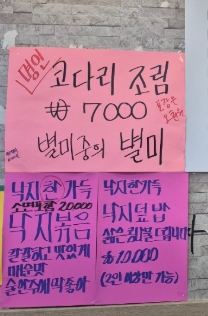 명인
코다리 조림
₩ 7000
포장은
별미중의 별미
낙지한가득
소면포함 20000
낙지볶음
칼칼하고 맛있게
매운맛
술안주에 딱 좋아
낙지한가득
낙지덮밥
삶은 힘불드립니다
₩10000
(2인 이상만 가능)